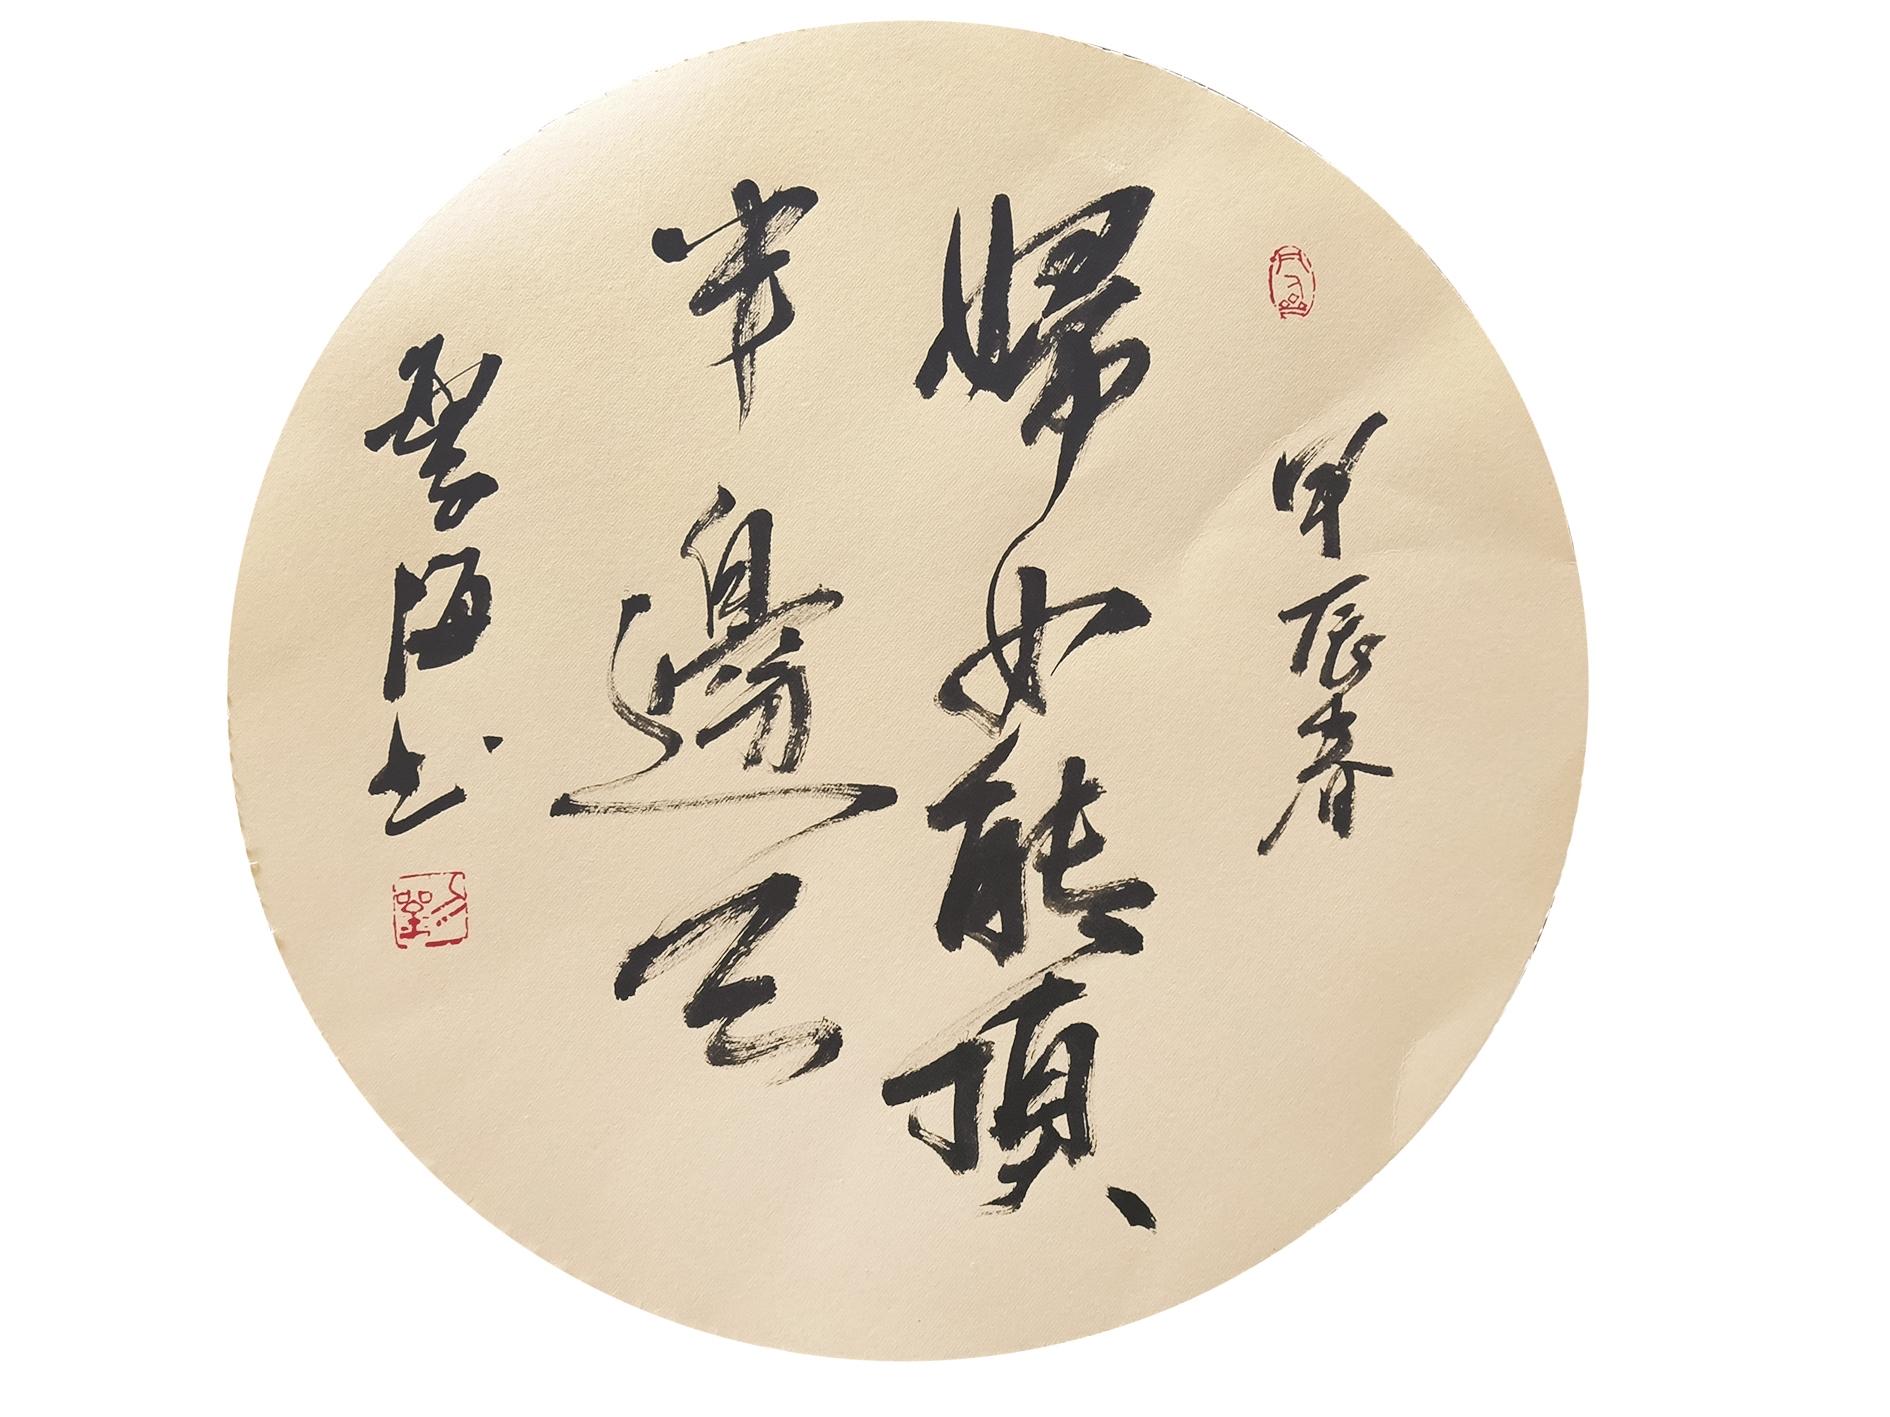 甲辰春
婦女能頂
半邊天
海书